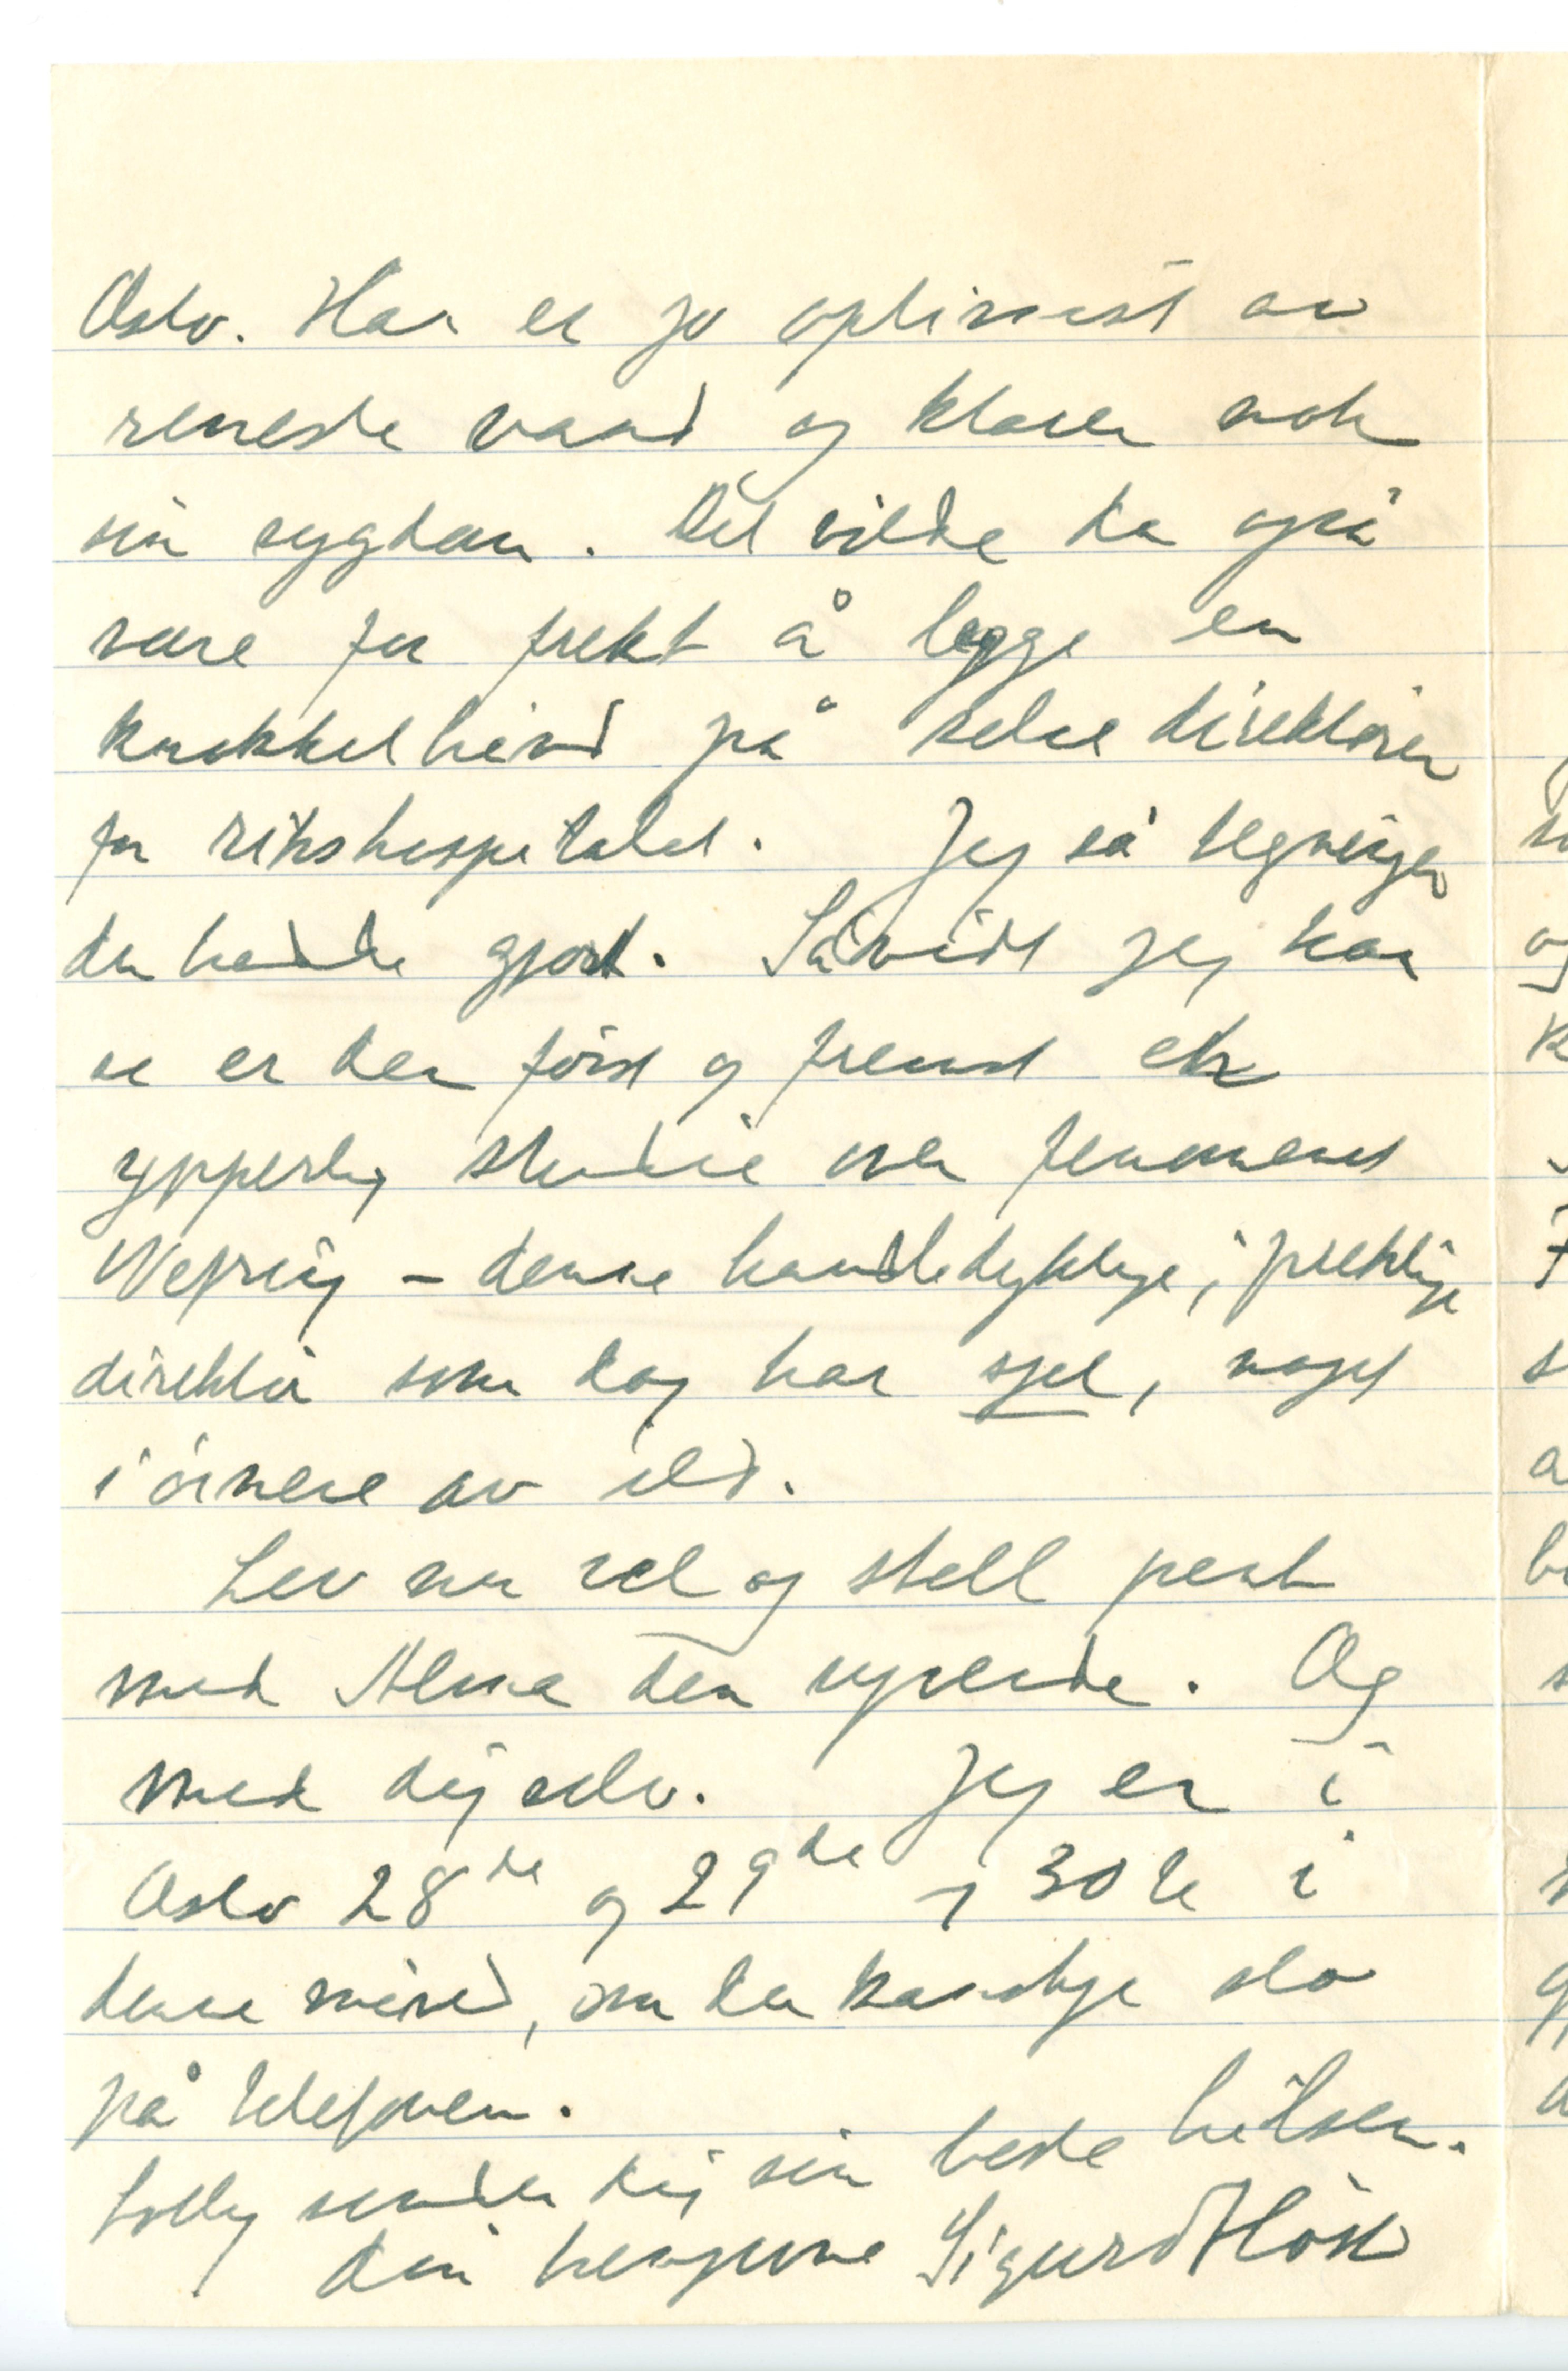 Oslo. Han er jo optimist av
reneste vand og klarer nok
sin sygdom. Det vilde da også
være for frekt å legge en
knokkelhånd på selve direktøren
for rikshospitalet. Jeg så tegningen
du hadde gjort. Såvidt jeg kan
se er den først og fremst en
ypperlig studie over fenomenet
Wefring – denne handledyktige, prektige
direktør som dog har sjel, noget
i øinene av ild.
Lev nu vel og stell pent
med Alma den
med dig selv. Jeg er i
Oslo 28de og 29de og 30te i
denne måned, om du kanskje slo
på telefonen.
Lolly sender dig sin beste hilsen.
din hengivne Sigurd Höst